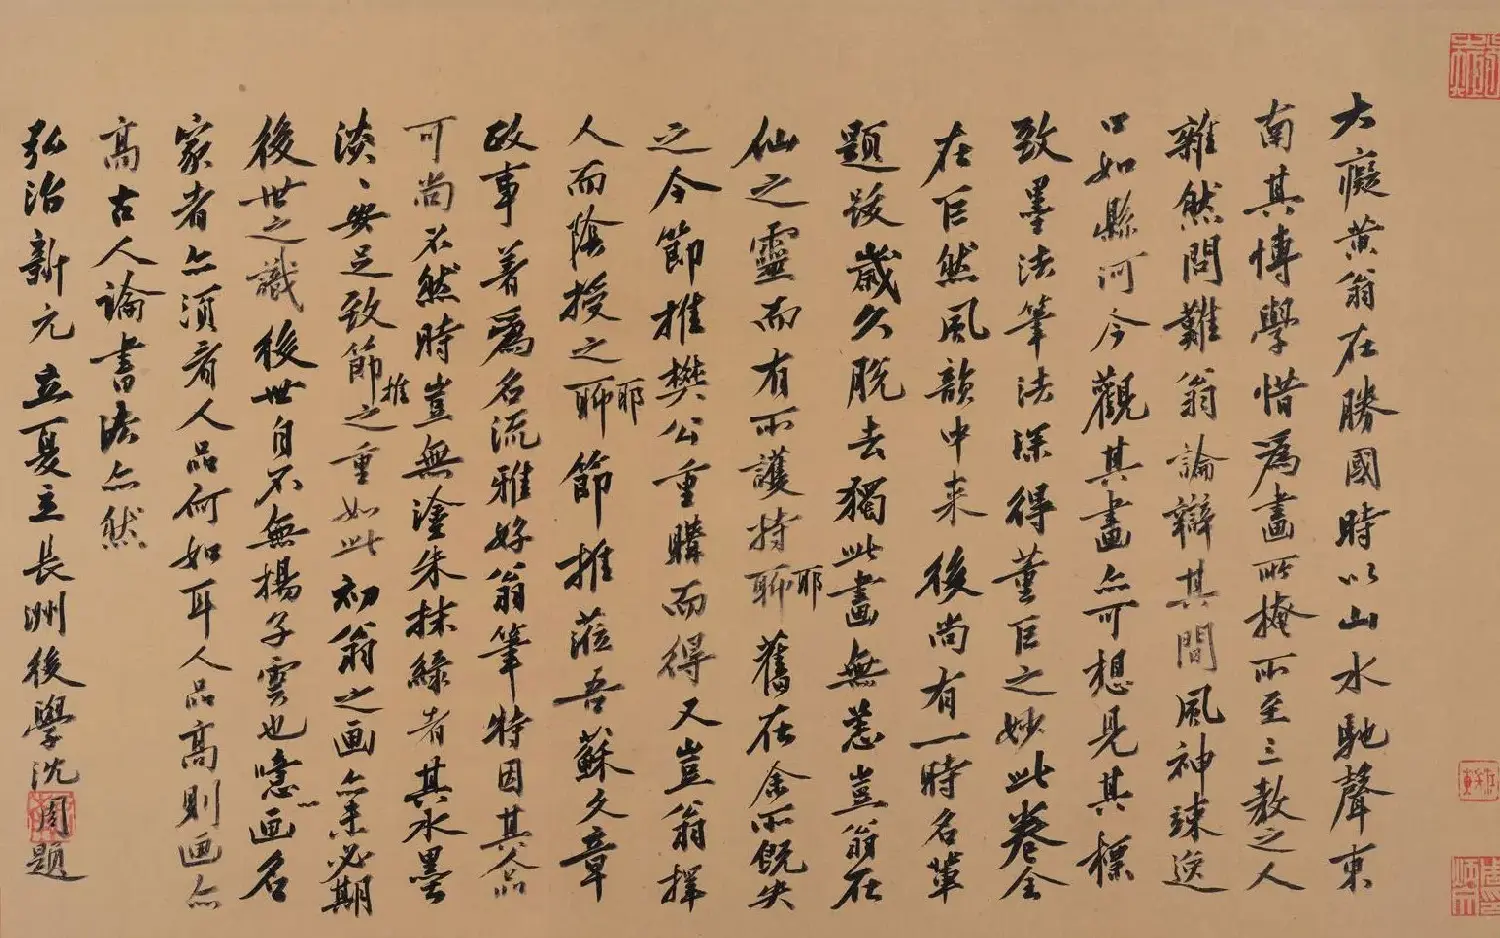 大癡黃翁在勝國時以山水馳聲東
南其博學惜為畫所掩所至三教之人
雜然問難翁論辯其間風神竦逸
口如懸河今觀其畫亦可想見其標
致墨法筆法深得董巨之妙此卷全
在巨然風韻中来後尚有一時名輩
題跋歲久脫去獨此畫無恙豈翁在
仙之靈而有所護持聊耶舊在余所既失
之今節推樊公重購而得又豈翁擇
人而陰授之聊耶節推蒞吾蘇文章
政事著為名流雅好翁筆特因其人品
可尚不然時豈無塗朱抹綠者其水墨
淡淡安足致節推之重如此初翁之画亦未必期
後世之識後世自不無揚子雲也噫画名
家者亦須看人品何如耳人品高則画亦
高古人論書法亦然
弘治新元立夏立長洲後學沈周題